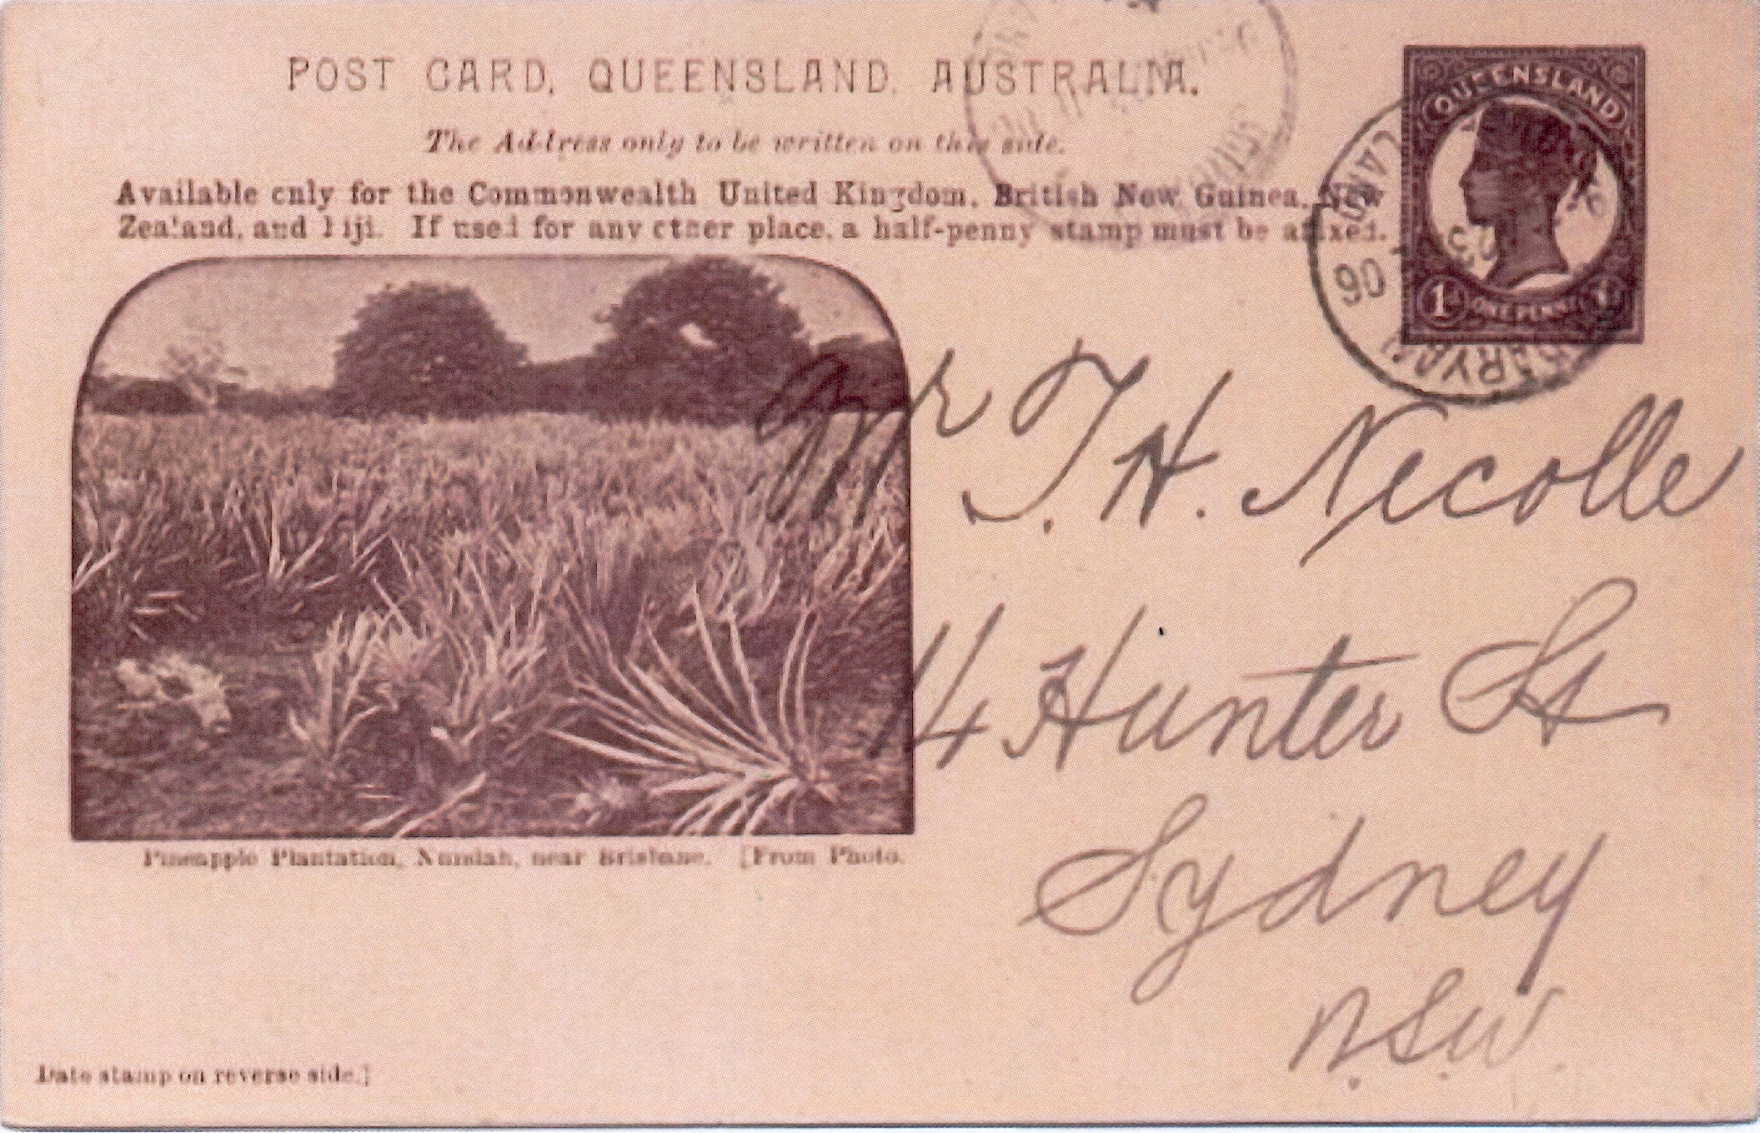 POST CARD, QUEENSLAND, AUSTRALIA.
The Address only to be written on this side.
Available only for the Commonwealth United Kingdom, British New Guinea, New
Zealand, and Fiji. If used for any other place, a half-penny stamp must be affixed.
QUEENSLAND
1d ONE PENNY 1d
06
Mr T. H. Necolle
14 Hunter St
Sydney
N.S.W.
Pineapple Plantation, Nundah, near Brisbane. [From Photo.
Date stamp on reverse side.]